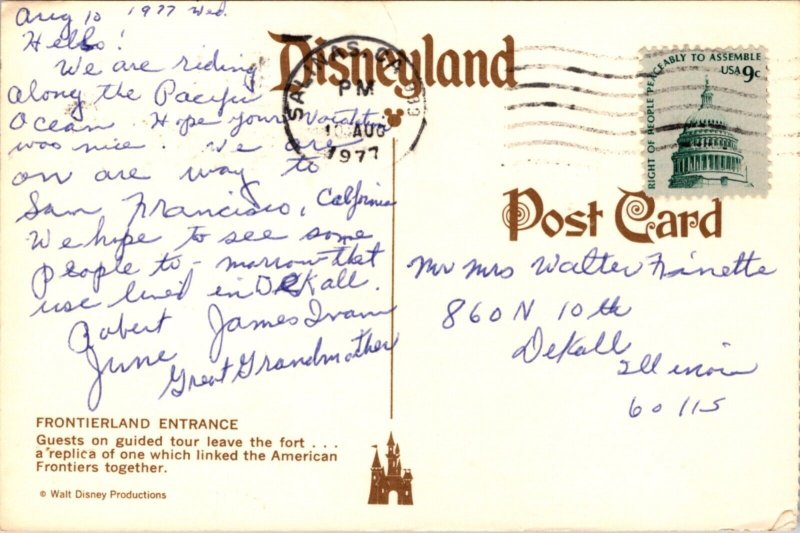 Aug 10 1977 Wed.
Hello!
We are riding
along the Pacific
Ocean Hope your Vacation
was nice. We are
on are way to
San Francisco, California
We hope to see some
people to-morrow that
use lived in DeKalb.
Robert James Ivan
June Great Grandmother
FRONTIERLAND ENTRANCE
Guests on guided tour leave the fort . . .
a replica of one which linked the American
Frontiers together.
© Walt Disney Productions
Disneyland
SALINAS, CA
PM
10 AUG
1977
RIGHT OF PEOPLE PEACEABLY TO ASSEMBLE
USA 9c
Post Card
Mr Mrs Walter Finette
860 N 10th
DeKalb
Illinois
60115